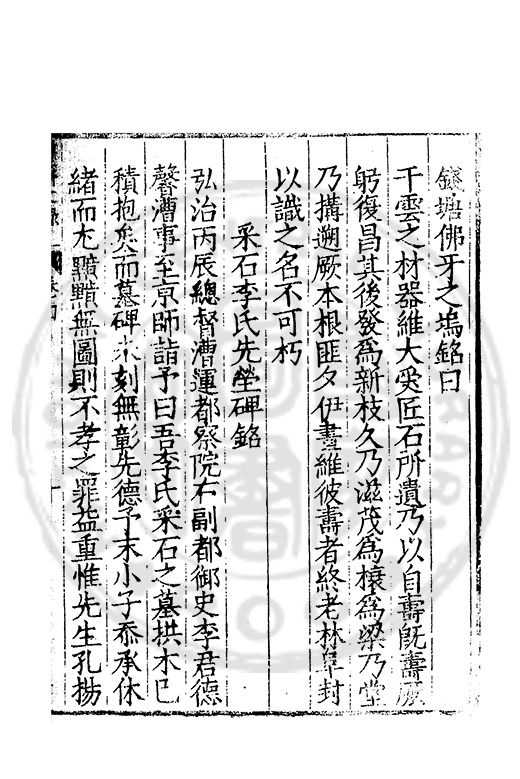 錢塘佛牙之塢銘曰
干雲之材器維大奚匠石所遺乃以自壽旣壽厥
躬復昌其後發爲新枝久乃滋茂爲榱爲梁乃堂
乃搆遡厥本根匪夕伊晝維彼壽者終老林阜封
以識之名不可朽
采石李氏先塋碑銘
弘治丙辰總督漕運都察院右副都御史李君德
馨漕事至京師詣予曰吾李氏采石之墓拱木已
積抱矣而墓碑未刻無彰先德予末小子忝承休
緒而尢顯顯無圖則不孝之罪益重惟先生孔揚